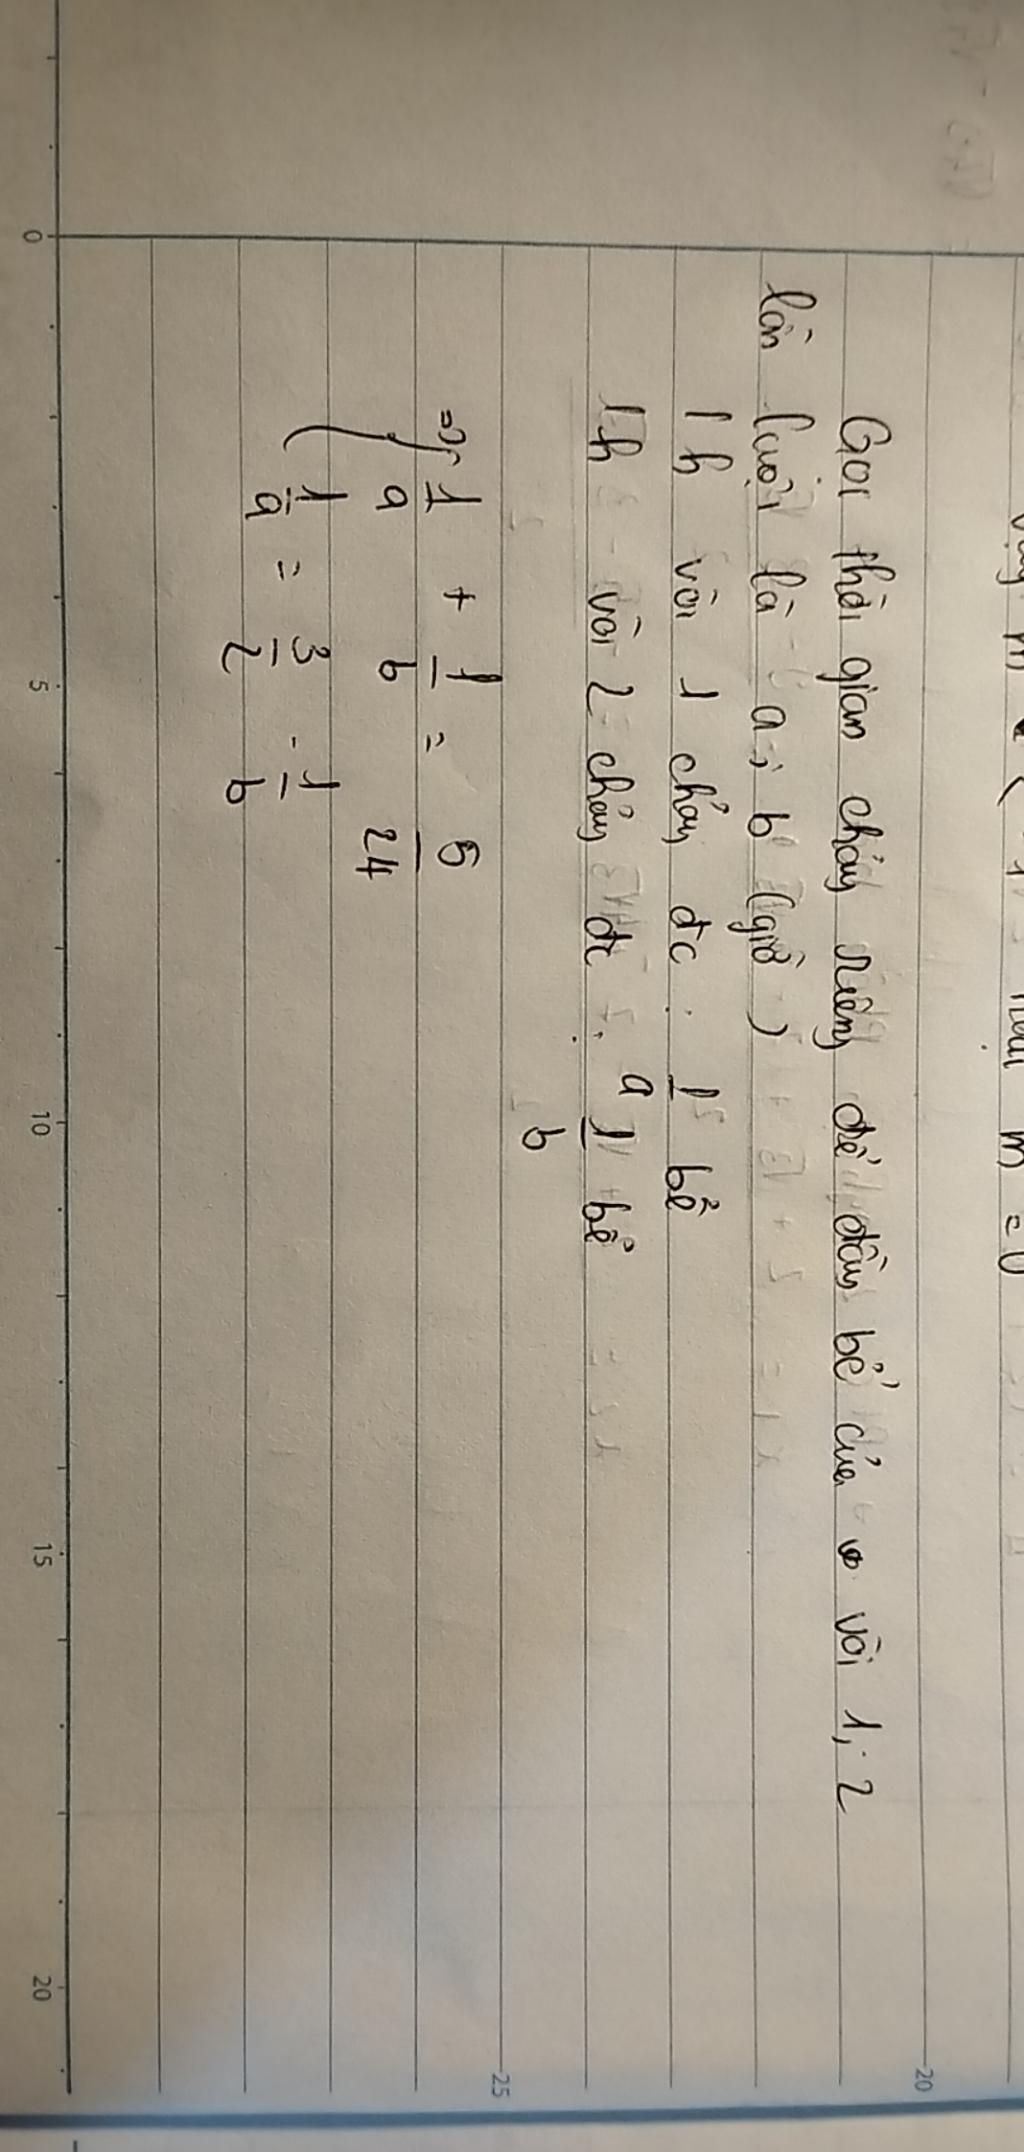 m = 0
Gọi thời gian chảy riêng để đầy bể của vòi 1, 2
lần lượt là a; b (giờ)
1 h vòi 1 chảy đc : 1/a bể
1 h vòi 2 chảy đc : 1/b bể
=> { 1/a + 1/b = 5/24
1/a = 3/2 - 1/b
0 5 10 15 20
20
25